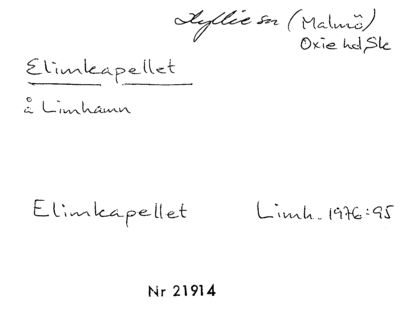 Hyllie sn (Malmö)
Oxie hd, Sk
Elimkapellet
å Limhamn
Elimkapellet Limh. 1976:95
Nr 21914